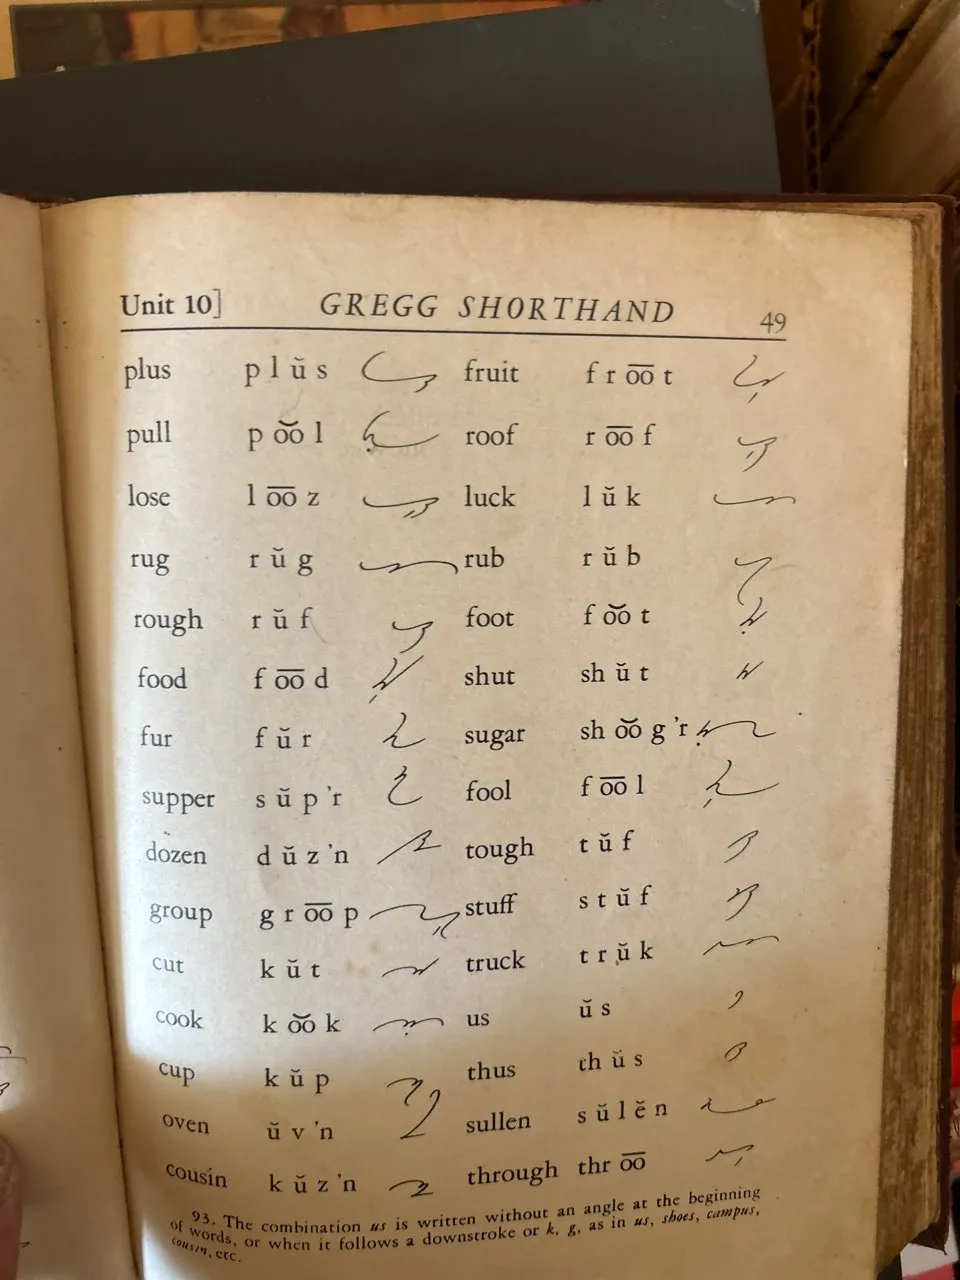 Unit 10] GREGG SHORTHAND 49
plus p l ŭ s fruit f r o͞o t
pull p o͝o l roof r o͞o f
lose l o͞o z luck l ŭ k
rug r ŭ g rub r ŭ b
rough r ŭ f foot f o͝o t
food f o͞o d shut sh ŭ t
fur f ŭ r sugar sh o͝o g 'r
supper s ŭ p 'r fool f o͞o l
dozen d ŭ z 'n tough t ŭ f
group g r o͞o p stuff s t ŭ f
cut k ŭ t truck t r ŭ k
cook k o͝o k us ŭ s
cup k ŭ p thus th ŭ s
oven ŭ v 'n sullen s ŭ l ĕ n
cousin k ŭ z 'n through thr o͞o
93. The combination us is written without an angle at the beginning
of words, or when it follows a downstroke or k, g, as in us, shoes, campus,
cousin, etc.